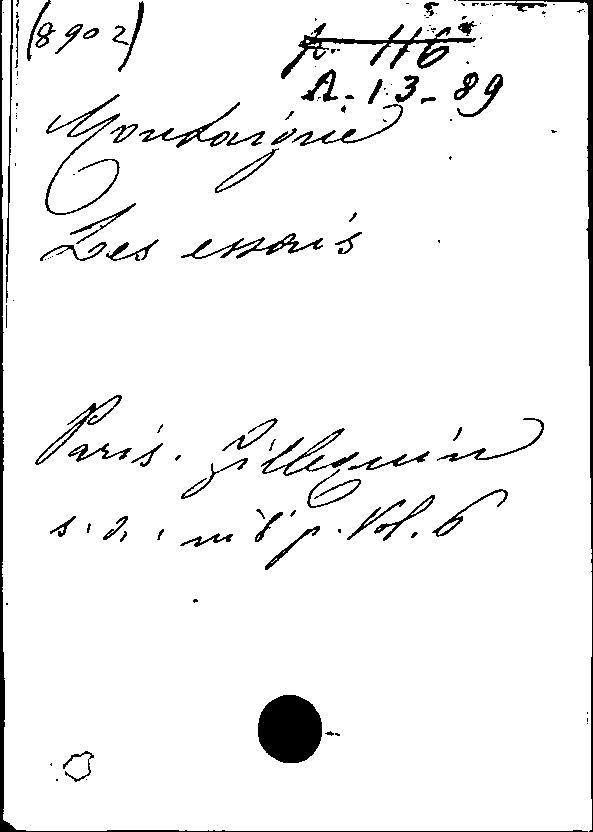 (8902)
p. 116
A. 13-89
Montaigne
Les essais
Paris. Gillequin
s.d., in 8° p. Vol. 6